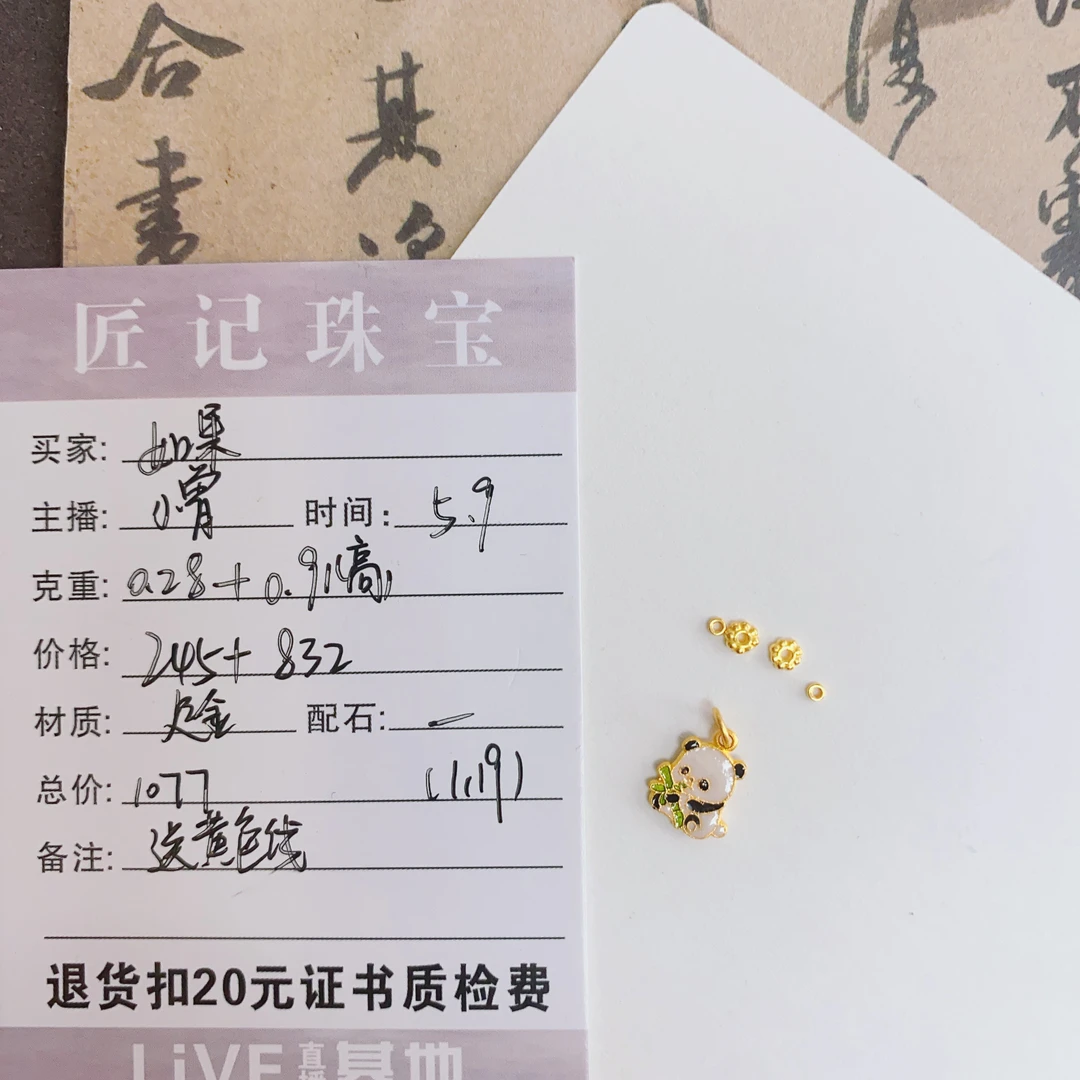 合 其
書
匠记珠宝
买家: 如果
主播: 小曾 时间: 5.9
克重: 0.28+0.91(高)
价格: 245+832
材质: 足金 配石: —
总价: 1077 (1.19)
备注: 送黄色线
退货扣20元证书质检费
LiVE直播基地